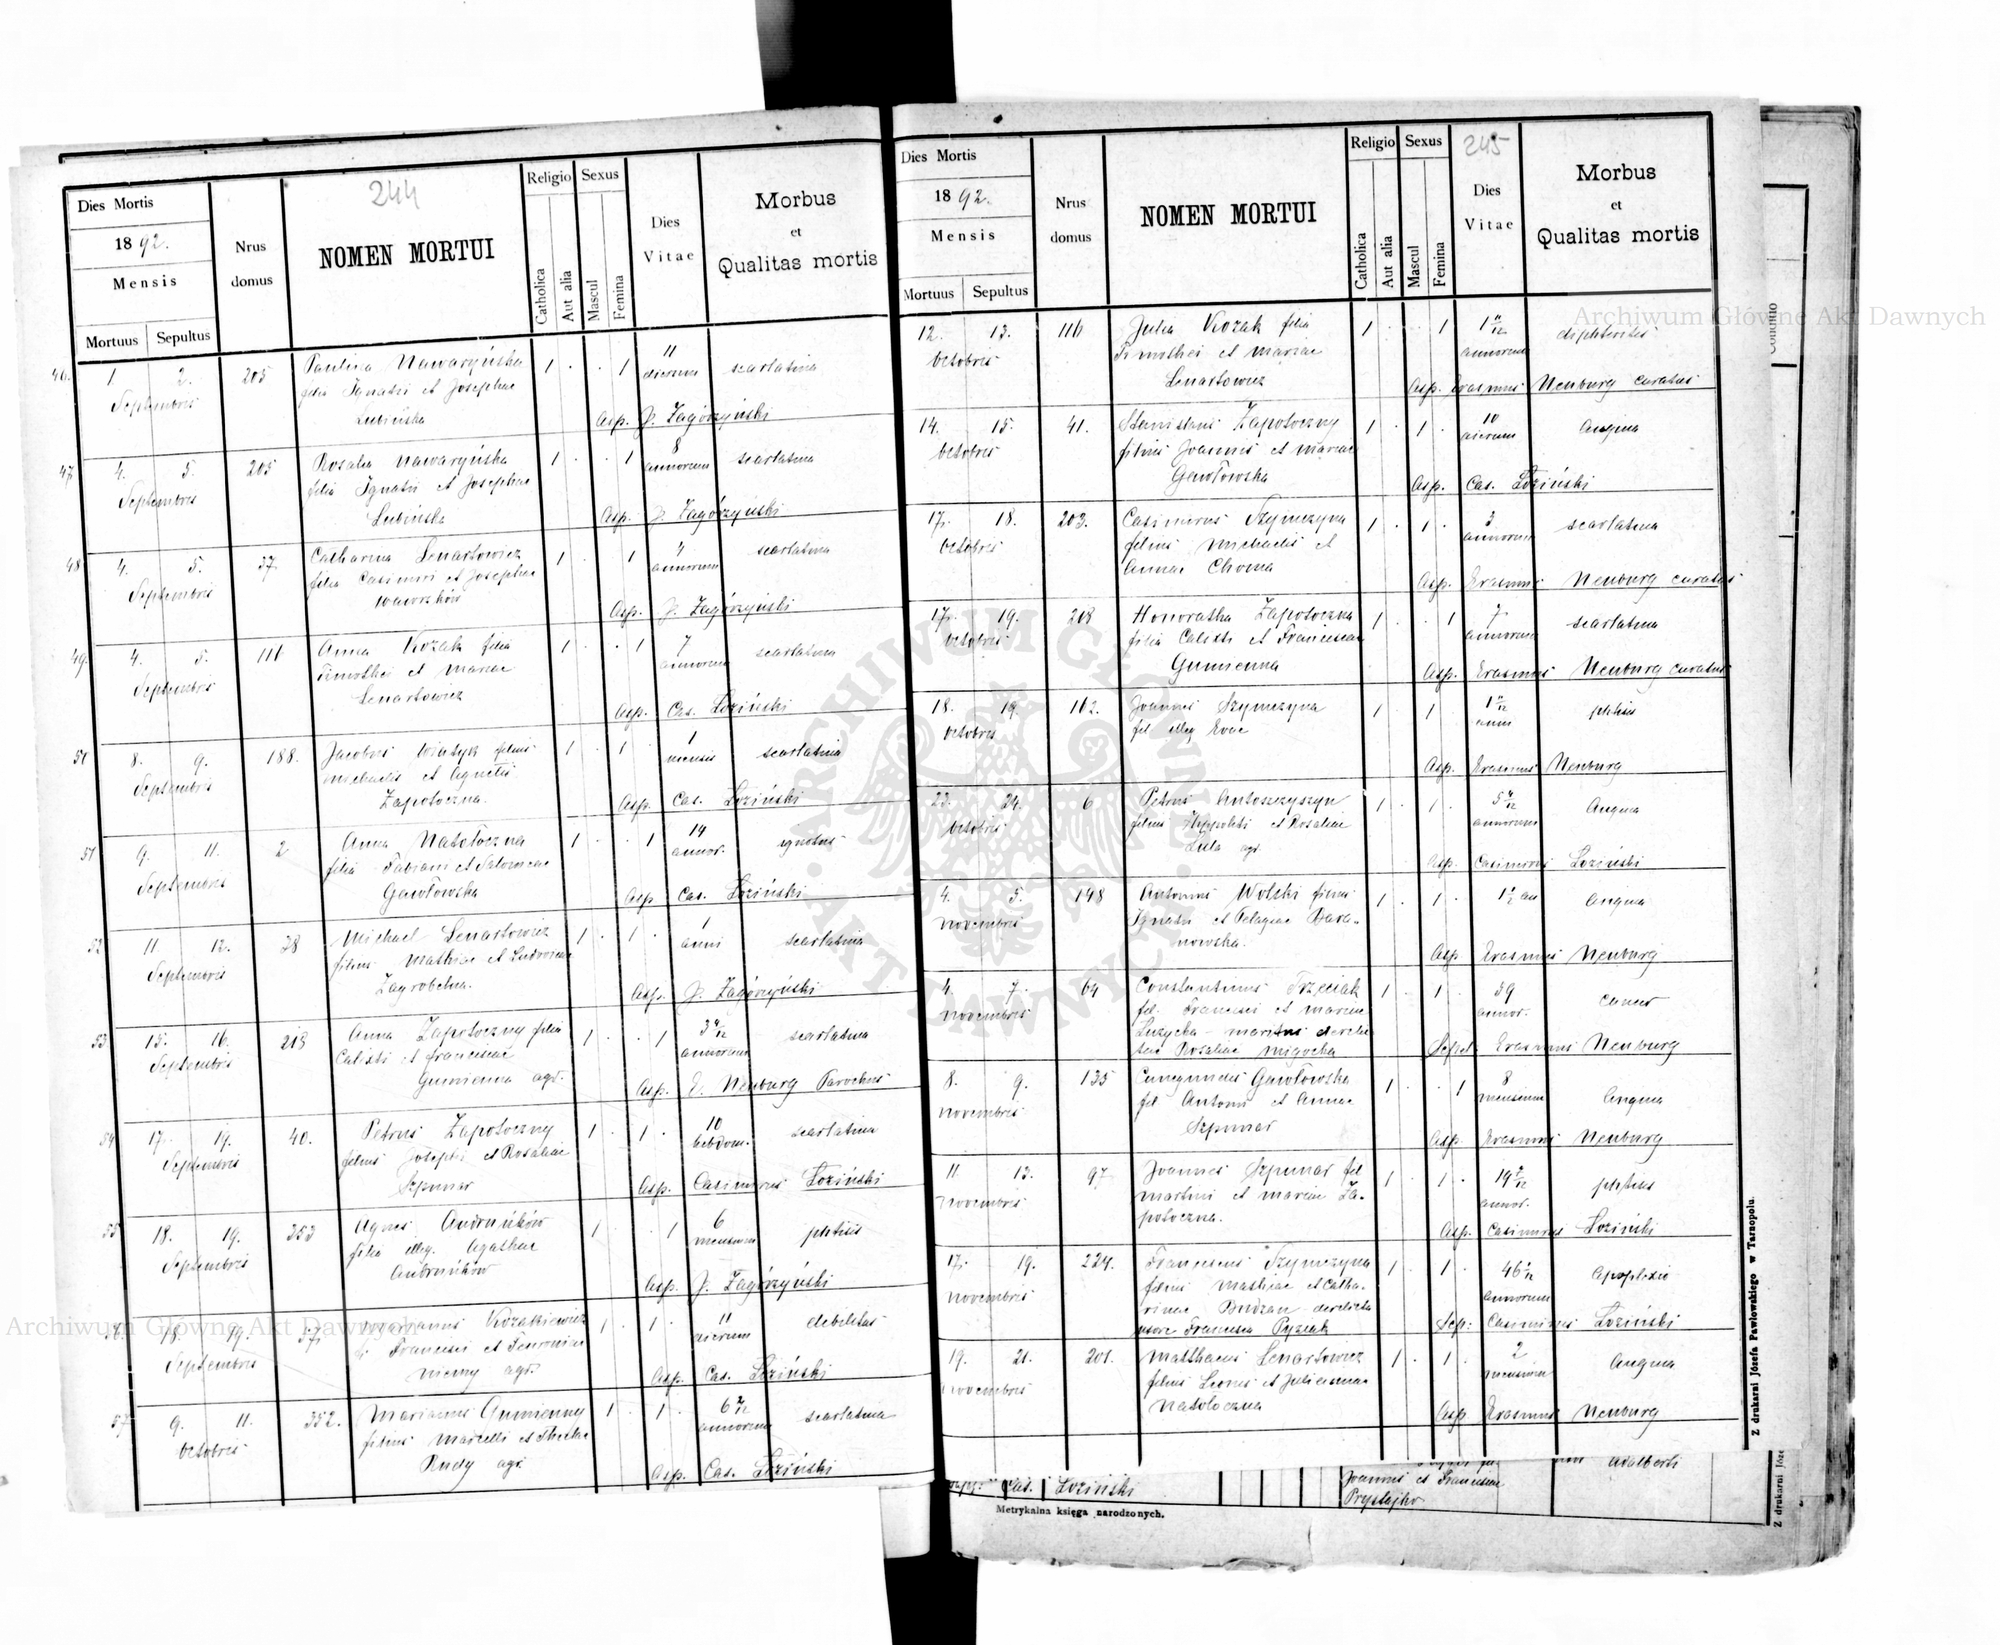 244
Dies Mortis
1892.
Mensis
Mortuus Sepultus
Nrus domus
NOMEN MORTUI
Religio
Catholica
Aut alia
Sexus
Mascul
Femina
Dies Vitae
Morbus
et
Qualitas mortis
46. 1. 2. 205 Paulina Nawaryńska 1 . . 1 11 scarlatina
Septembris filia Ignatii et Josephae dierum
Lubińska Asp. J. Zagórzyński
47 4. 5. 205 Rosalia Nawaryńska 1 . . 1 8 scarlatina
Septembris filia Ignatii et Josephae annorum
Lubińska Asp. J. Zagórzyński
48 4. 5. 37. Catharina Lenartowicz 1 . . 1 4 scarlatina
Septembris filia Casimiri et Josephae annorum
Asp. J. Zagórzyński
49. 4. 5. 116 Anna Kozak filia 1 . . 1 7 scarlatina
Septembris Timothei et Mariae annorum
Lenartowicz Asp. Cas. Łoziński
8. 9. 188. Jacobus filius 1 . 1 . 1 scarlatina
Septembris Michaelis et Agnetis mensis
Zapotoczna. Asp. Cas. Łoziński
51 9. 11. 2 Anna Natołoczna 1 . . 1 14 ignotus
Septembris filia Fabiani et Salomeae annor.
Gawłowska Asp. Cas. Łoziński
52 11. 12. 28 Michael Lenartowicz 1 . 1 . 1 scarlatina
Septembris filius Mathiae et Ludovicae anni
Zagrobelna. Asp. J. Zagórzyński
53 15. 16. 218 Anna Zapotoczny filia 1 . . 1 scarlatina
Septembris Calixti et Franciscae annorum
Gumienna agr. Asp. E. Neuburg Parochus
54 17. 19. 40. Petrus Zapotoczny 1 . 1 . 10 scarlatina
Septembris filius Josephi et Rosaliae hebdom.
Szpunar Asp. Casimirus Łoziński
55 18. 19. 353 Agnes Andruńków 1 . . 1 6 phtisis
Septembris filia illeg. Agathae mensium
Andruńków Asp. J. Zagórzyński
18. 19. 57. Marianus Kozakiewicz 1 . 1 . 11 debilitas
Septembris fi Francisci et dierum
agr. Asp. Cas. Łoziński
57 9. 11. 352. Marianus Gumienny 1 . 1 . scarlatina
Octobris filius Marcelli et annorum
Rudy agr. Asp. Cas. Łoziński
245
Dies Mortis
1892.
Mensis
Mortuus Sepultus
Nrus domus
NOMEN MORTUI
Religio
Catholica
Aut alia
Sexus
Mascul
Femina
Dies Vitae
Morbus
et
Qualitas mortis
12. 13. 116 Julia Kozak filia 1 . . 1 1 11/12 diphteritis
Octobris Timothei et Mariae annorum
Lenartowicz Asp. Erasmus Neuburg curatus
14. 15. 41. Stanislaus Zapotoczny 1 . 1 . 10 Angina
Octobris filius Joannis et Mariae dierum
Gawłowska Asp. Cas. Łoziński
17. 18. 203. Casimirus Szymczyna 1 . 1 . 3 scarlatina
Octobris filius Michaelis et annorum
Annae Choma Asp. Erasmus Neuburg curatus
17. 19. 218 Honoratha Zapotoczna 1 . . 1 7 scarlatina
Octobris filia Calixti et Franciscae annorum
Gumienna Asp. Erasmus Neuburg curatus
18. 19. 162. Joannes Szymczyna 1 . 1 . phtisis
Octobris fil illeg Evae anni
Asp. Erasmus Neuburg
23. 24. 6 Petrus Antoszczyszyn 1 . 1 . Angina
Octobris filius Hippoliti et Rosaliae annorum
Lula agr. Asp. Casimirus Łoziński
4. 5. 148 Antonius Wolski filius 1 . 1 . Angina
Novembris Ignatii et Pelagiae Bara-
nowska. Asp Erasmus Neuburg
4. 7. 64 Constantinus Trzeciak 1 . 1 . 59 cancer
Novembris fil. Francisci et Mariae annor.
Łuzycka - maritus derelic
tae Rosaliae Migocka Sepel. Erasmus Neuburg
8. 9. 135 Cunegundis Gawłowska 1 . . 1 8 Angina
Novembris fil Antonii et Annae mensium
Szpunar Asp. Erasmus Neuburg
11 13. 97 Joannes Szpunar fil 1 . 1 . phtisis
Novembris Martini et Mariae Za- annor.
potoczna. Asp. Casimirus Łoziński
17. 19. 224. Franciscus Szymczyna 1 . 1 . Apoplexio
Novembris filius Mathiae et Catha- annorum
rinae Budzan derelicta
uxore Francisca Pyziak Sep: Casimirus Łoziński
19. 21. 201. Matthaeus Lenartowicz 1 . 1 . 2 Angina
Novembris filius Leonis et Julianae mensium
Natołoczna Asp Erasmus Neuburg
Cas. Łoziński
Joannis et Franciscae
Prystajko
Adalberti
Metrykalna księga narodzonych.
Z drukarni Józefa Pawłowskiego w Tarnopolu.
Z drukarni Józe
Archiwum Główne Akt Dawnych
Archiwum Główne Akt Dawnych
ARCHIWUM GŁÓWNE · AKT DAWNYCH ·